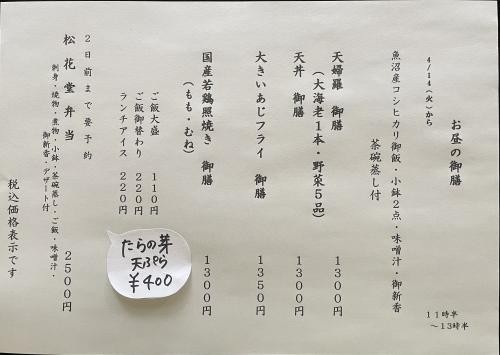 お昼の御膳
11時半
～13時半
4/14(火)から
魚沼産コシヒカリ御飯・小鉢2点・味噌汁・御新香
茶碗蒸し付
天婦羅 御膳 1300円
(大海老1本・野菜5品)
天丼 御膳 1300円
大きいあじフライ 御膳 1350円
国産若鶏照焼き 御膳 1300円
(もも・むね)
ご飯大盛 110円
ご飯御替わり 220円
ランチアイス 220円
たらの芽
天ぷら
¥400
2日前まで要予約
松花堂弁当 2500円
刺身・焼物・煮物・小鉢・茶碗蒸し・ご飯・味噌汁・
御新香・デザート付
税込価格表示です